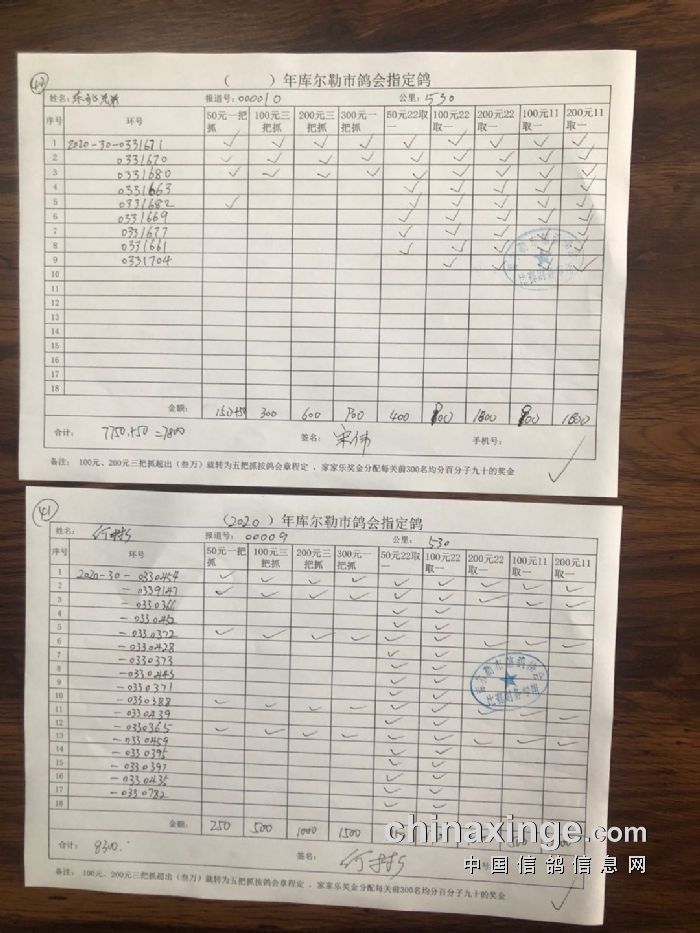 42
（ ）年库尔勒市鸽会指定鸽
姓名: 报道号: 000010 公里: 530
序号 环号 50元一把抓 100元三把抓 200元三把抓 300元一把抓 50元22取一 100元22取一 200元22取一 100元11取一 200元11取一
1 2020-30-0331671 ✓ ✓ ✓ ✓ ✓ ✓ ✓ ✓ ✓
2 0331670 ✓ ✓ ✓ ✓ ✓ ✓ ✓ ✓ ✓
3 0331680 ✓ ✓ ✓ ✓ ✓ ✓ ✓ ✓ ✓
4 0331663 ✓ ✓ ✓ ✓ ✓
5 0331682 ✓ ✓ ✓ ✓ ✓ ✓
6 0331669 ✓ ✓ ✓ ✓ ✓
7 0331677 ✓ ✓ ✓ ✓ ✓
8 0331661 ✓ ✓ ✓ ✓ ✓
9 0331704 ✓ ✓ ✓ ✓
10
11
12
13
14
15
16
17
18
金额: 150+50 300 600 900 400 900 1800 900 1800
合计: 7750+50=7800 签名: 宋伟 手机号:
备注: 100元、200元三把抓超出（叁万）就转为五把抓按鸽会章程定，家家乐奖金分配每关前300名均分百分子九十的奖金
41
（2020）年库尔勒市鸽会指定鸽
姓名: 报道号: 00009 公里: 530
序号 环号 50元一把抓 100元三把抓 200元三把抓 300元一把抓 50元22取一 100元22取一 200元22取一 100元11取一 200元11取一
1 2020-30-0330454
2 -0339147
3 -0330366
4
5 -0330372
6 -0330428
7 -0330373
8 -0330445
9 -0330371
10 -0330388
11 -0330439
12 -0330365
13 -0330459
14 -0330395
15 -0330397
16 -0330435
17 -0330782
18
金额: 250 500 1000 1500
合计: 8300. 签名:
备注: 100元、200元三把抓超出（叁万）就转为五把抓按鸽会章程定，家家乐奖金分配每关前300名均分百分子九十的奖金
chinaxinge.com
中国信鸽信息网